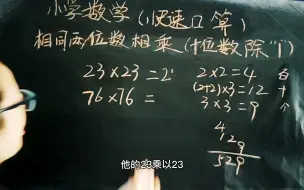 小学数学(快速口算)
相同两位数相乘(十位数除"1")
23×23=2
2×2=4 百
76×76=
(2+2)×3=12 十
3×3=9 个
4
12
9
529
他的23乘以23